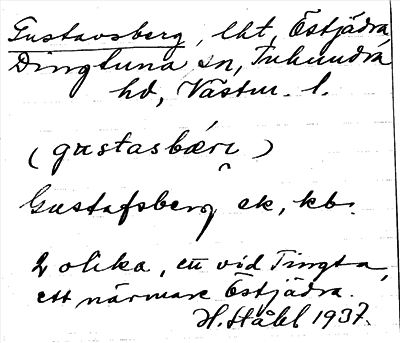 Gustavsberg, lht, Östjädra,
Dingtuna sn, Tuhundra
hd, Västm. l.
(gustasbæri)
Gustafsberg ek, kb.
2 olika, ett vid Tingta,
ett närmare Östjädra.
H. Ståhl 1937.